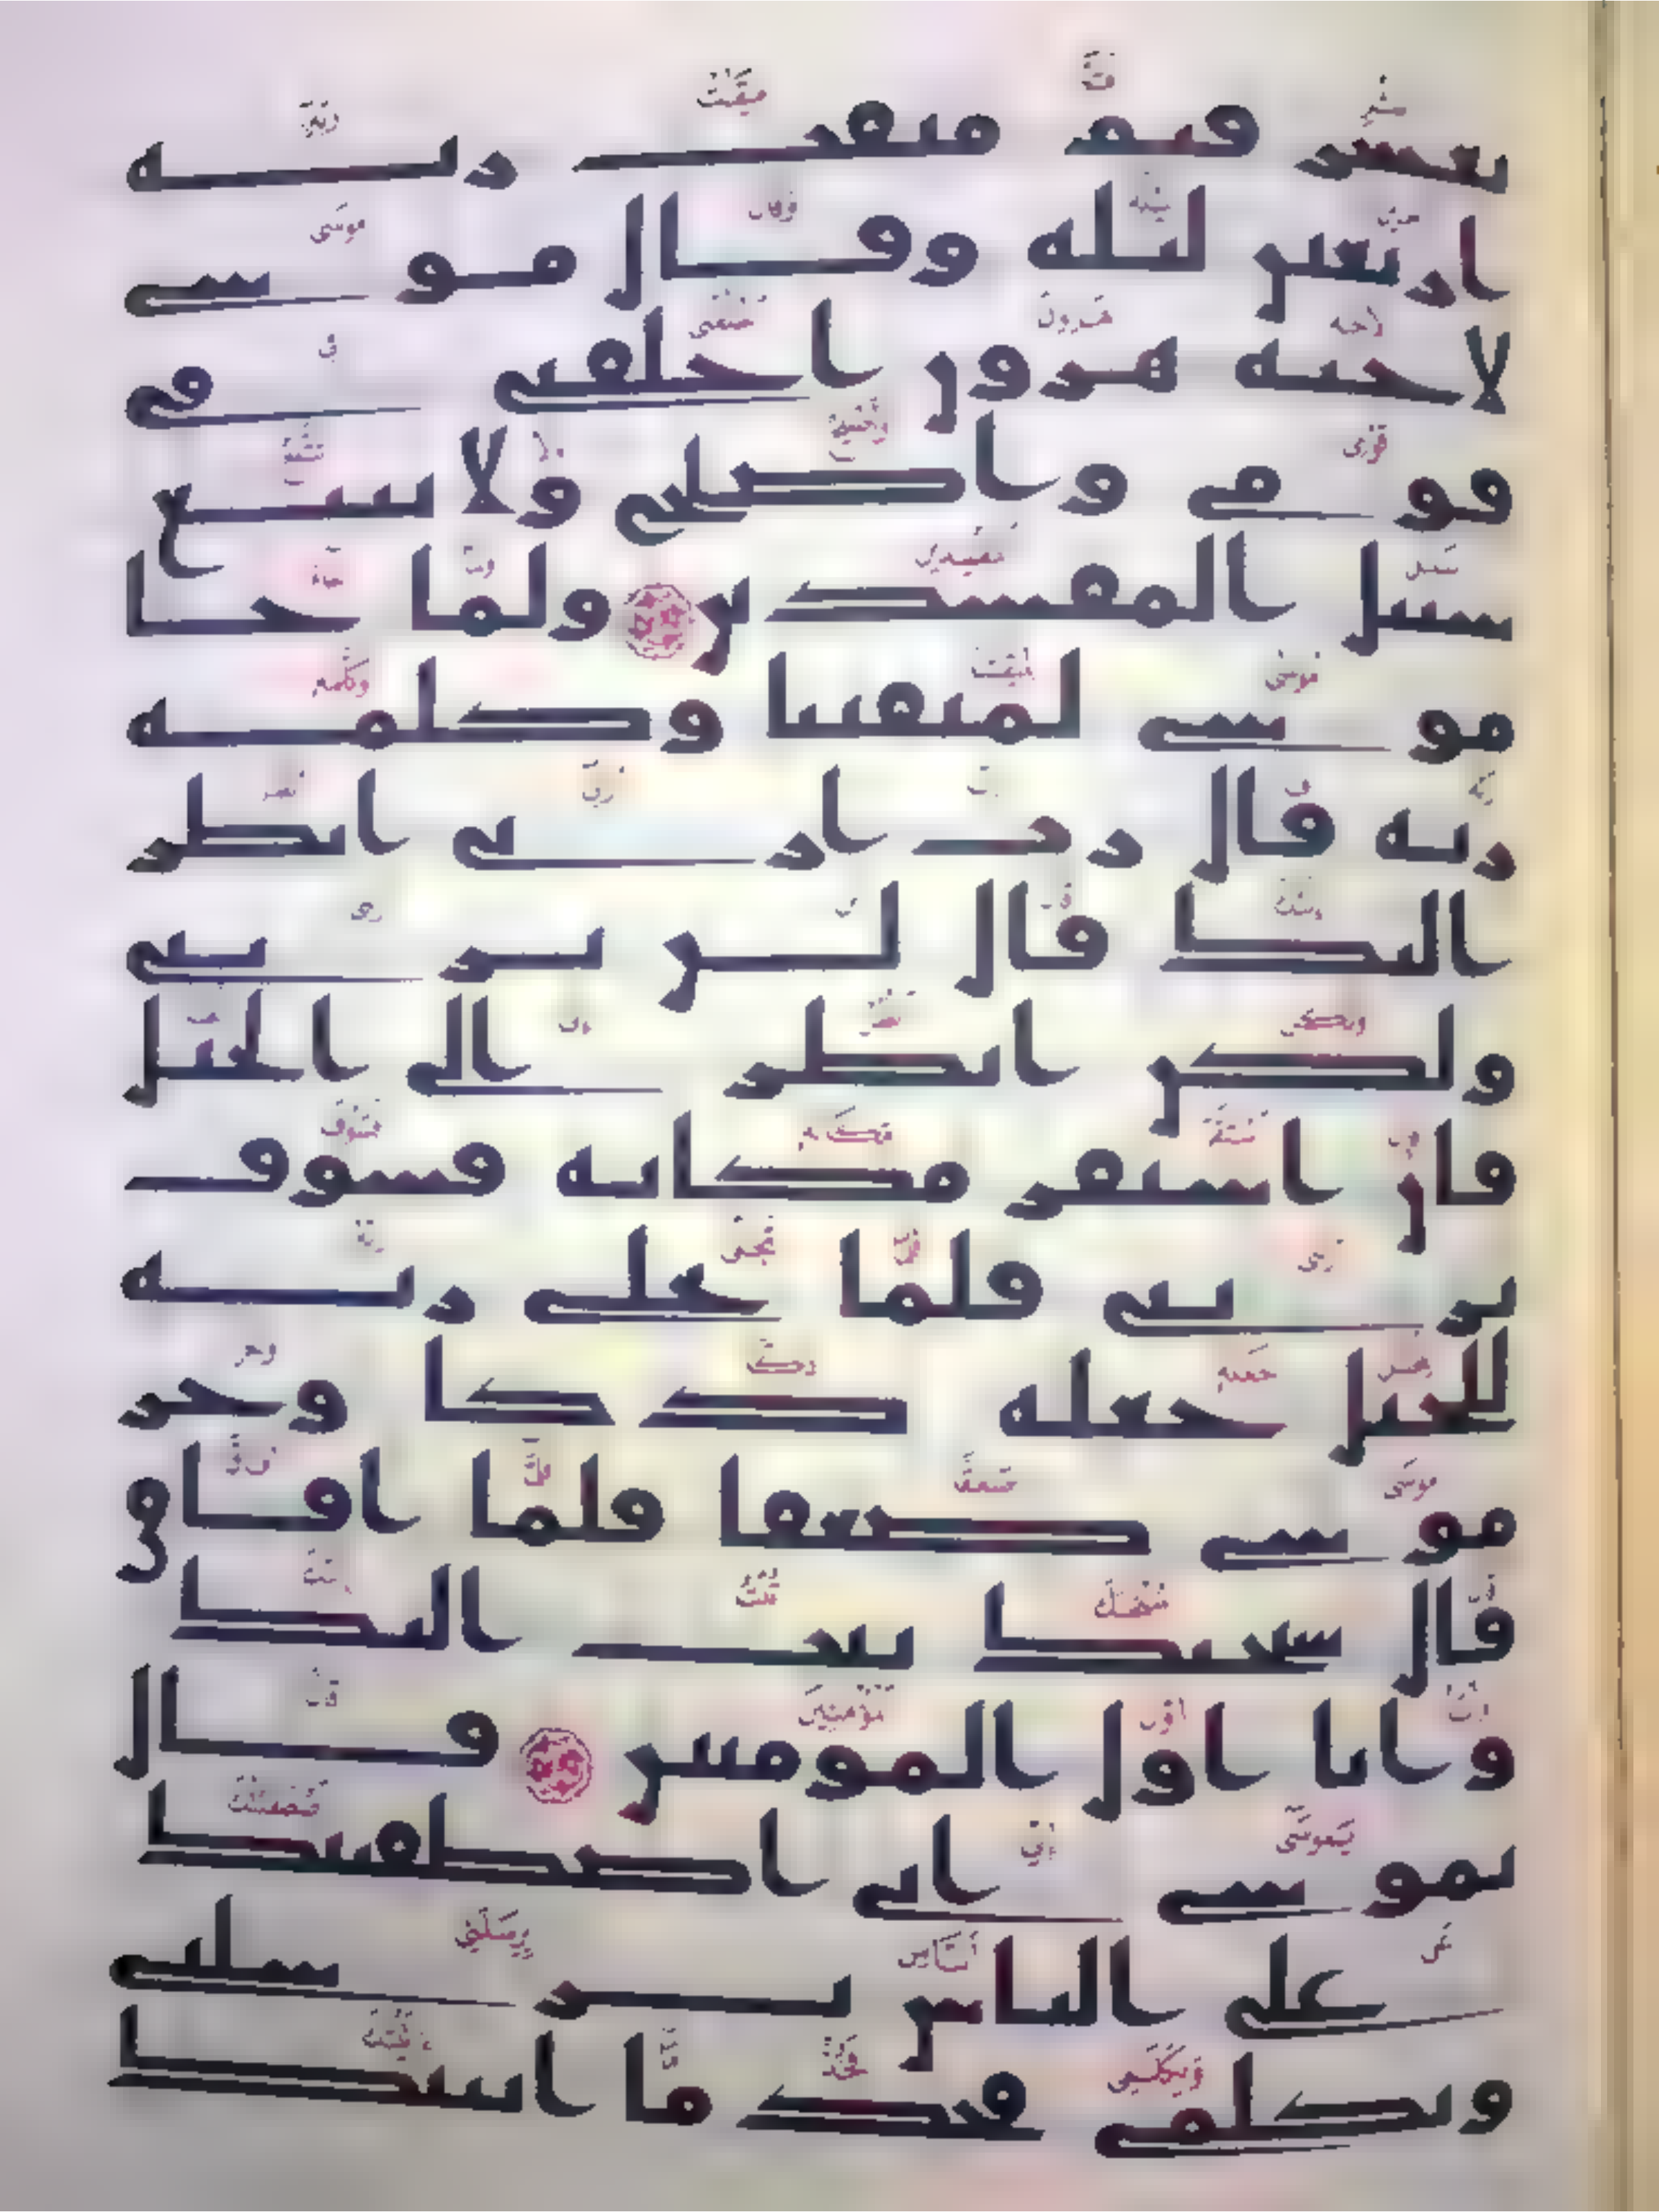 بعشر فتم ميقت ربه
اربعين ليله وقال موسى
لاخيه هرون اخلفني في
قومي واصلح ولا تتبع
سبيل المفسدين ولما جا
موسى لميقتنا وكلمه
ربه قال رب ارني انظر
اليك قال لن تريني
ولكن انظر الى الجبل
فان استقر مكانه فسوف
تريني فلما تجلى ربه
للجبل جعله دكا وخر
موسى صعقا فلما افاق
قال سبحنك تبت اليك
وانا اول المومنين قال
يموسى اني اصطفيتك
على الناس برسلتي
وبكلمي فخذ ما اتيتك